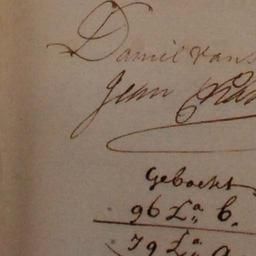 Daniel van
Jean
Geboekt
96 La. b.
79 La.